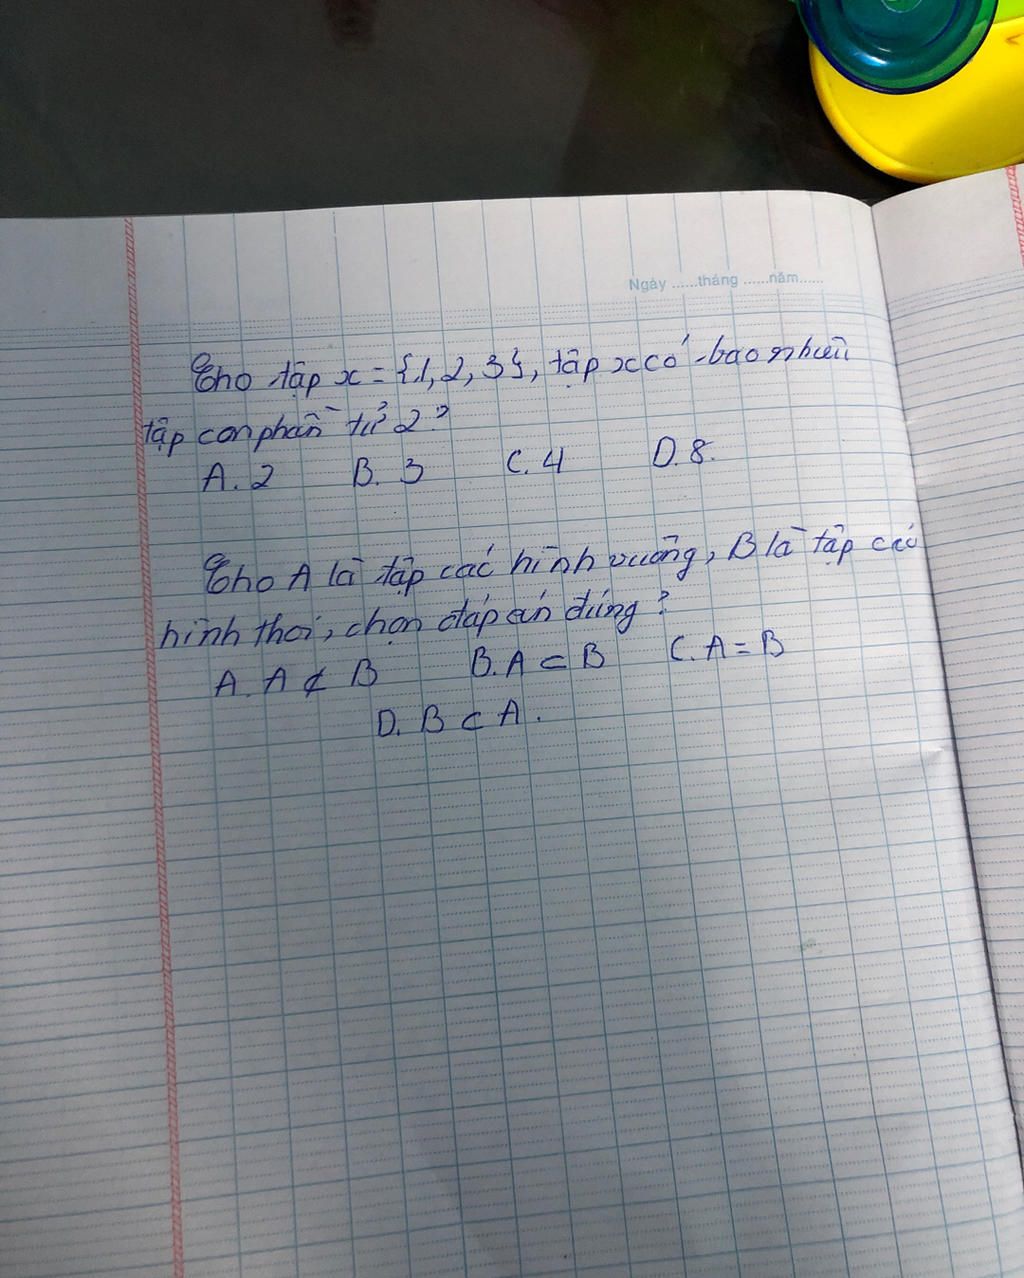 Ngày ......tháng ......năm......
Cho tập x = {1, 2, 3}, tập x có bao nhiêu
tập con phần tử 2?
A. 2 B. 3 C. 4 D. 8.
Cho A là tập các hình vuông, B là tập các
hình thoi, chọn đáp án đúng?
A. A ⊄ B B. A ⊂ B C. A = B
D. B ⊂ A.